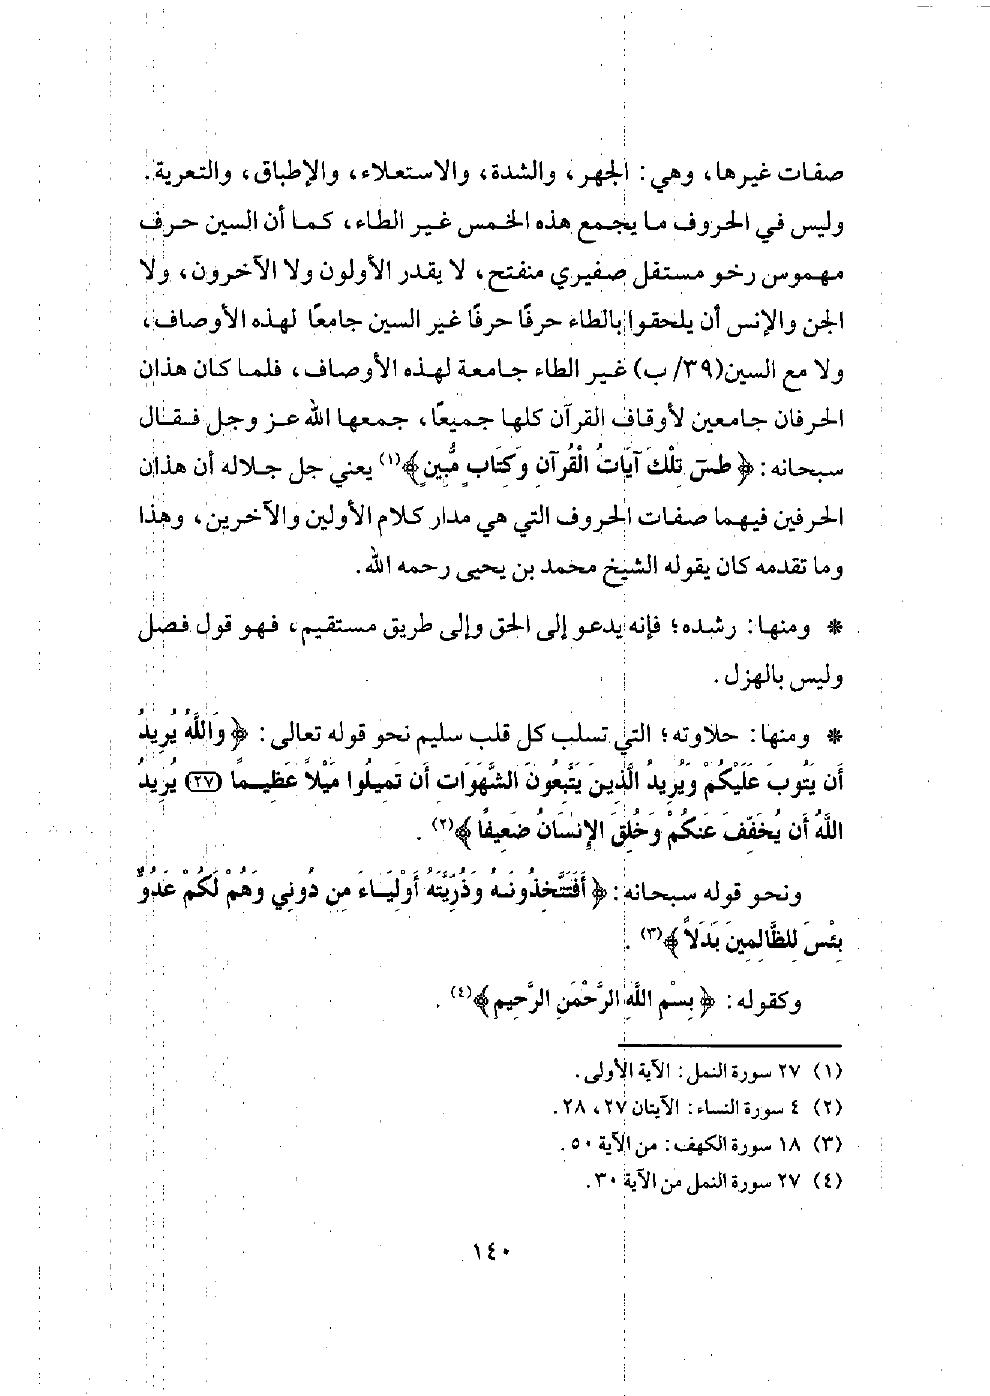 صفات غيرها، وهي: الجهر، والشدة، والاستعلاء، والإطباق، والتعرية.
وليس في الحروف ما يجمع هذه الخمس غير الطاء، كما أن السين حرف
مهموس رخو مستفل صفيري منفتح، لا يقدر الأولون ولا الآخرون، ولا
الجن والإنس أن يلحقوا بالطاء حرفًا حرفًا غير السين جامعًا لهذه الأوصاف،
ولا مع السين(٣٩/ ب) غير الطاء جامعة لهذه الأوصاف، فلما كان هذان
الحرفان جامعين لأوقاف القرآن كلها جميعًا، جمعها الله عز وجل فقال
سبحانه: ﴿ طسَ تِلْكَ آيَاتُ الْقُرْآنِ وَكِتَابٍ مُّبِينٍ ﴾(١) يعني جل جلاله أن هذان
الحرفين فيهما صفات الحروف التي هي مدار كلام الأولين والآخرين، وهذا
وما تقدمه كان يقوله الشيخ محمد بن يحيى رحمه الله.
* ومنها: رشده؛ فإنه يدعو إلى الحق وإلى طريق مستقيم، فهو قول فصل
وليس بالهزل.
* ومنها: حلاوته؛ التي تسلب كل قلب سليم نحو قوله تعالى: ﴿ وَاللَّهُ يُرِيدُ
أَن يَتُوبَ عَلَيْكُمْ وَيُرِيدُ الَّذِينَ يَتَّبِعُونَ الشَّهَوَاتِ أَن تَمِيلُوا مَيْلاً عَظِيمًا (٢٧) يُرِيدُ
اللَّهُ أَن يُخَفِّفَ عَنكُمْ وَخُلِقَ الإِنسَانُ ضَعِيفًا ﴾(٢).
ونحو قوله سبحانه: ﴿ أَفَتَتَّخِذُونَهُ وَذُرِّيَّتَهُ أَوْلِيَاءَ مِن دُونِي وَهُمْ لَكُمْ عَدُوٌّ
بِئْسَ لِلظَّالِمِينَ بَدَلاً ﴾(٣).
وكقوله: ﴿ بِسْمِ اللَّهِ الرَّحْمَنِ الرَّحِيمِ ﴾(٤).
(١) ٢٧ سورة النمل: الآية الأولى.
(٢) ٤ سورة النساء: الآيتان ٢٧، ٢٨.
(٣) ١٨ سورة الكهف: من الآية ٥٠.
(٤) ٢٧ سورة النمل من الآية ٣٠.
١٤٠